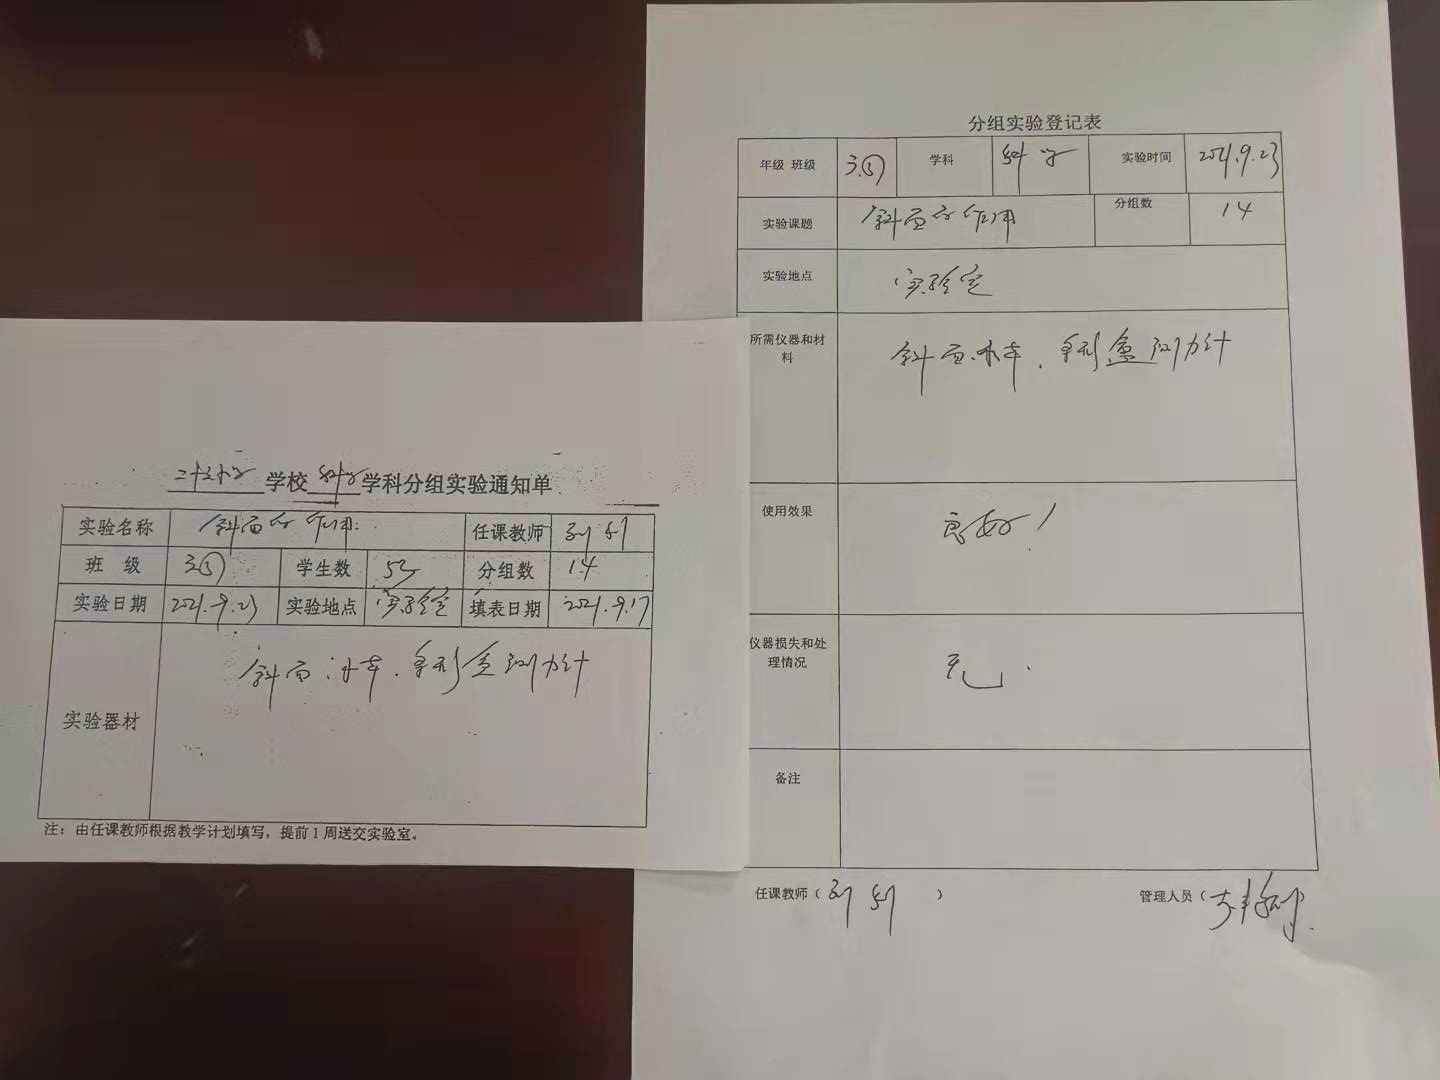 学校 科学 学科分组实验通知单
实验名称 斜面的作用 任课教师 刘
班 级 3.⑤ 学生数 分组数 14
实验日期 2021.9.23 实验地点 实验室 填表日期 2021.9.17
实验器材 斜面 测力计
注：由任课教师根据教学计划填写，提前1周送交实验室。
分组实验登记表
年级 班级 3.⑤ 学科 科学 实验时间 2021.9.23
实验课题 斜面的作用 分组数 14
实验地点 实验室
所需仪器和材料 斜面 测力计
使用效果 良好！
仪器损失和处理情况 无.
备注
任课教师（刘 ）
管理人员（